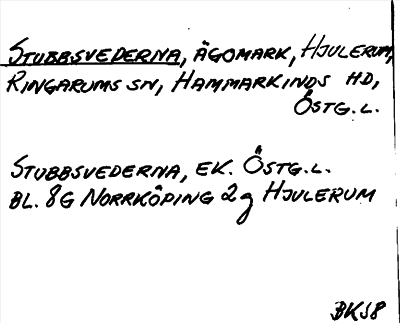 STUBBSVEDERNA, ÄGOMARK, HJULERUM,
RINGARUMS SN, HAMMARKINDS HD,
ÖSTG.L.
STUBBSVEDERNA, EK. ÖSTG.L.
BL. 8G NORRKÖPING 2g HJULERUM
BKS8